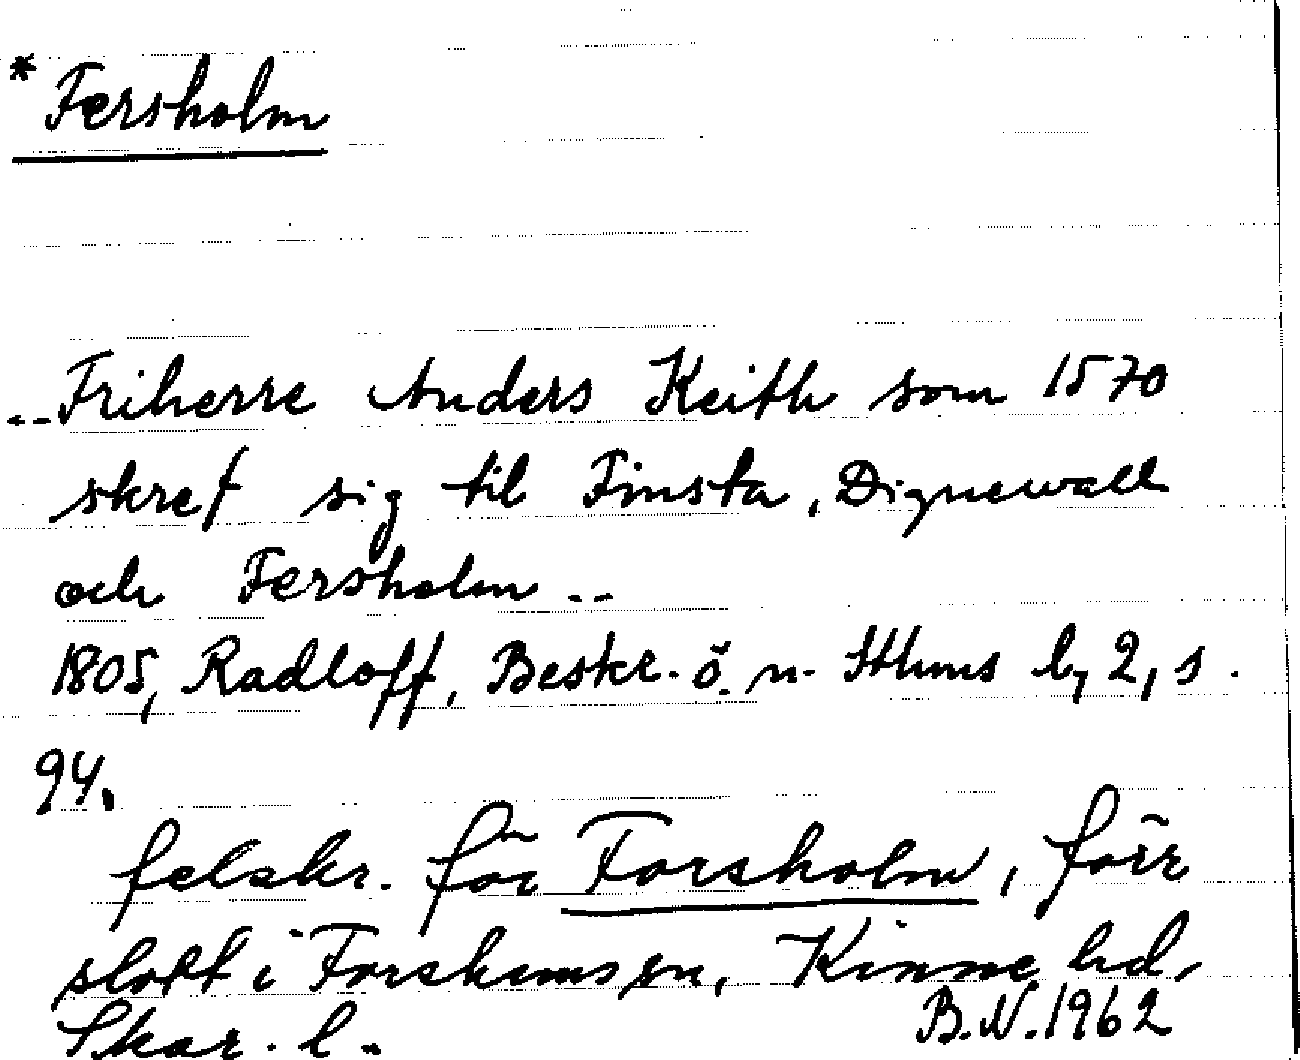 * Fersholm
..Friherre Anders Keith som 1570
skref sig til Finsta, Dignewall
och Fersholm ..
1805, Radloff, Beskr. ö. n. Sthms l, 2, s.
94.
felskr. för Forsholm, förr
slott i Forshems sn, Kinne hd,
Skar. l.
B.N. 1962